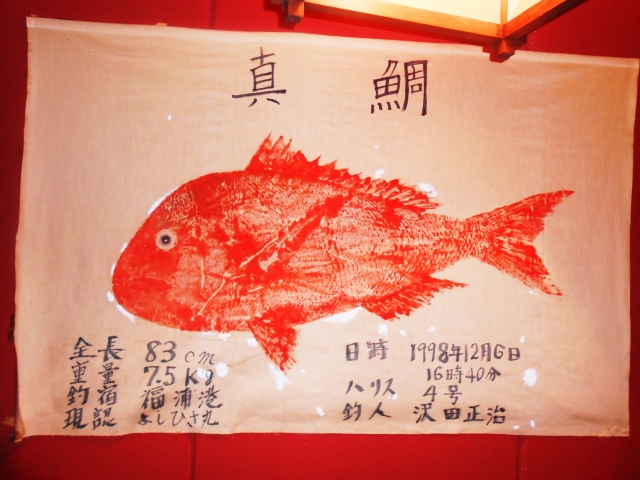 真 鯛
全長 83cm
重量 7.5Kg
釣宿 福浦港
現認 よしひさ丸
日時 1998年12月6日
16時40分
ハリス 4号
釣人 沢田正治